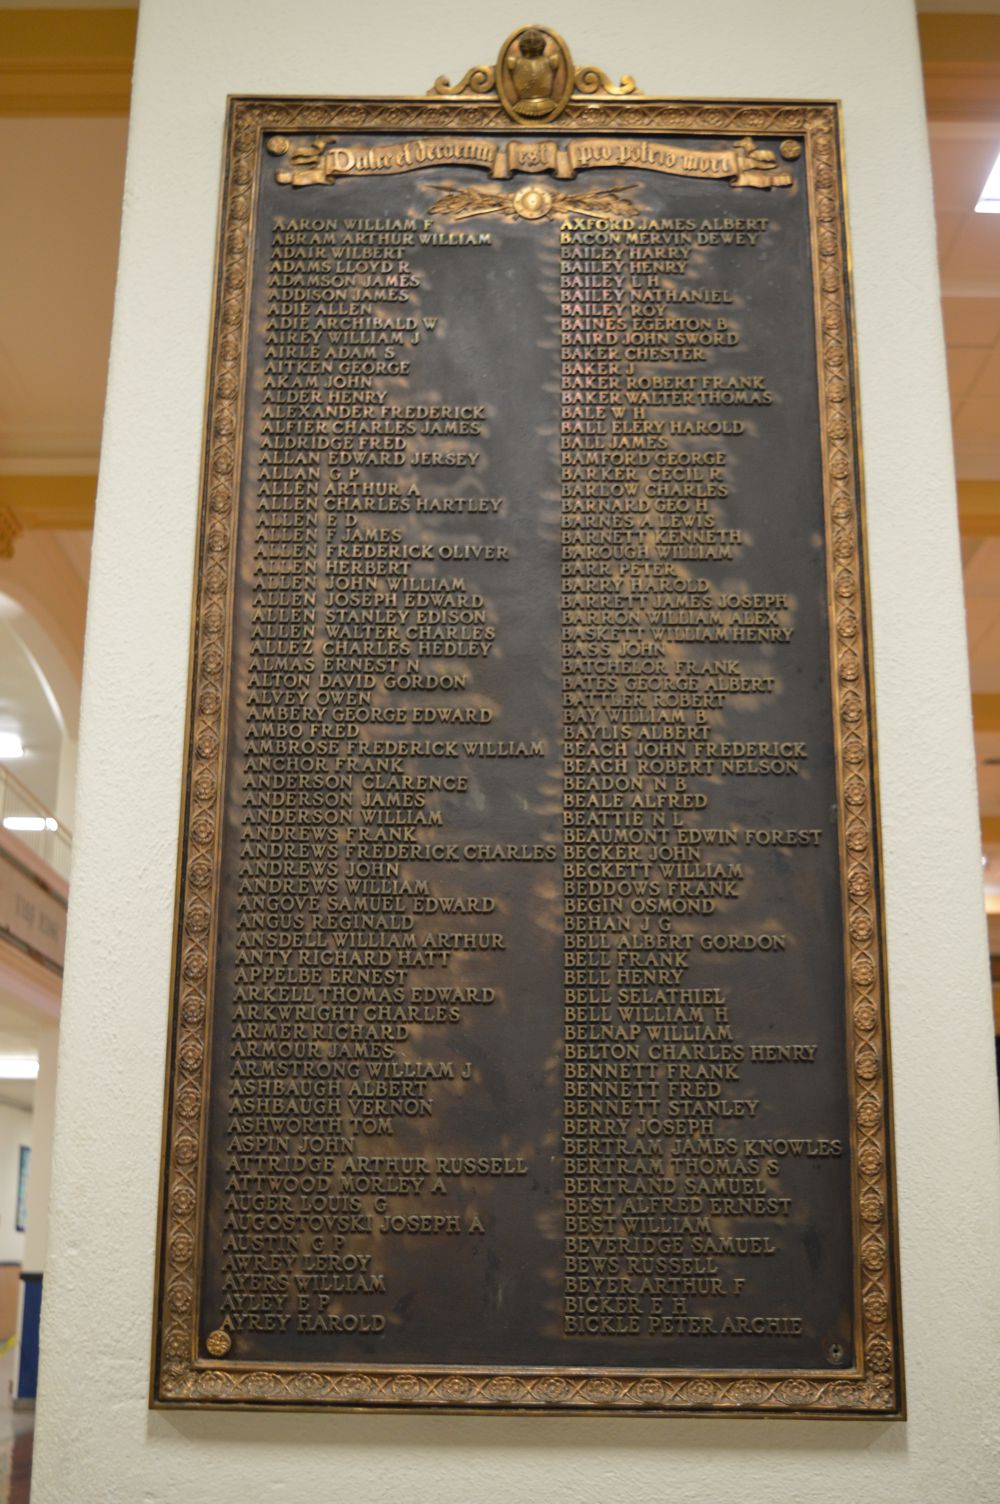 Dulce et decorum est pro patria mori
AARON WILLIAM F
ABRAM ARTHUR WILLIAM
ADAIR WILBERT
ADAMS LLOYD R
ADAMSON JAMES
ADDISON JAMES
ADIE ALLEN
ADIE ARCHIBALD W
AIREY WILLIAM J
AIRLE ADAM S
AITKEN GEORGE
AKAM JOHN
ALDER HENRY
ALEXANDER FREDERICK
ALFIER CHARLES JAMES
ALDRIDGE FRED
ALLAN EDWARD JERSEY
ALLAN G P
ALLEN ARTHUR A
ALLEN CHARLES HARTLEY
ALLEN E D
ALLEN F JAMES
ALLEN FREDERICK OLIVER
ALLEN HERBERT
ALLEN JOHN WILLIAM
ALLEN JOSEPH EDWARD
ALLEN STANLEY EDISON
ALLEN WALTER CHARLES
ALLEZ CHARLES HEDLEY
ALMAS ERNEST N
ALTON DAVID GORDON
ALVEY OWEN
AMBERY GEORGE EDWARD
AMBO FRED
AMBROSE FREDERICK WILLIAM
ANCHOR FRANK
ANDERSON CLARENCE
ANDERSON JAMES
ANDERSON WILLIAM
ANDREWS FRANK
ANDREWS FREDERICK CHARLES
ANDREWS JOHN
ANDREWS WILLIAM
ANGOVE SAMUEL EDWARD
ANGUS REGINALD
ANSDELL WILLIAM ARTHUR
ANTY RICHARD HATT
APPELBE ERNEST
ARKELL THOMAS EDWARD
ARKWRIGHT CHARLES
ARMER RICHARD
ARMOUR JAMES
ARMSTRONG WILLIAM J
ASHBAUGH ALBERT
ASHBAUGH VERNON
ASHWORTH TOM
ASPIN JOHN
ATTRIDGE ARTHUR RUSSELL
ATTWOOD MORLEY A
AUGER LOUIS G
AUGOSTOVSKI JOSEPH A
AUSTIN G P
AWREY LEROY
AYERS WILLIAM
AYLEY E P
AYREY HAROLD
AXFORD JAMES ALBERT
BACON MERVIN DEWEY
BAILEY HARRY
BAILEY HENRY
BAILEY L H
BAILEY NATHANIEL
BAILEY ROY
BAINES EGERTON B
BAIRD JOHN SWORD
BAKER CHESTER
BAKER J
BAKER ROBERT FRANK
BAKER WALTER THOMAS
BALE W H
BALL ELERY HAROLD
BALL JAMES
BAMFORD GEORGE
BARKER CECIL R
BARLOW CHARLES
BARNARD GEO H
BARNES A LEWIS
BARNETT KENNETH
BAROUGH WILLIAM
BARR PETER
BARRY HAROLD
BARRETT JAMES JOSEPH
BARRON WILLIAM ALEX
BASKETT WILLIAM HENRY
BASS JOHN
BATCHELOR FRANK
BATES GEORGE ALBERT
BATTLER ROBERT
BAY WILLIAM B
BAYLIS ALBERT
BEACH JOHN FREDERICK
BEACH ROBERT NELSON
BEADON N B
BEALE ALFRED
BEATTIE N L
BEAUMONT EDWIN FOREST
BECKER JOHN
BECKETT WILLIAM
BEDDOWS FRANK
BEGIN OSMOND
BEHAN J G
BELL ALBERT GORDON
BELL FRANK
BELL HENRY
BELL SELATHIEL
BELL WILLIAM H
BELNAP WILLIAM
BELTON CHARLES HENRY
BENNETT FRANK
BENNETT FRED
BENNETT STANLEY
BERRY JOSEPH
BERTRAM JAMES KNOWLES
BERTRAM THOMAS S
BERTRAND SAMUEL
BEST ALFRED ERNEST
BEST WILLIAM
BEVERIDGE SAMUEL
BEWS RUSSELL
BEYER ARTHUR F
BICKER E H
BICKLE PETER ARCHIE